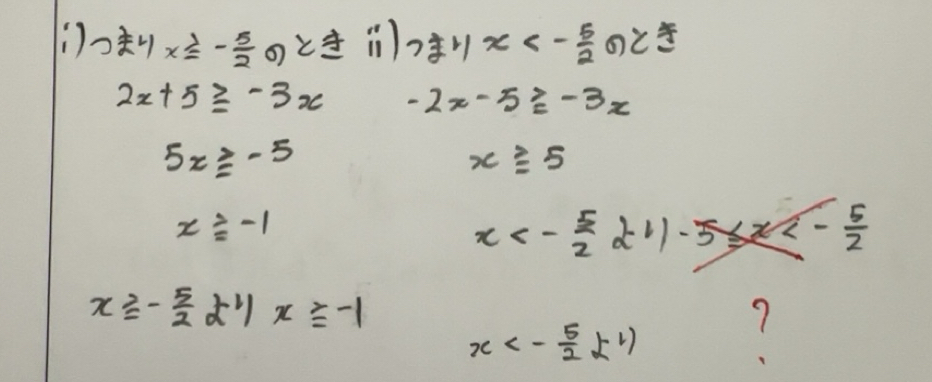 i)つまりx≧-5/2のとき
2x+5≧-3x
5x≧-5
x≧-1
x≧-5/2より x≧-1
ii)つまりx<-5/2のとき
-2x-5≧-3x
x≧5
x<-5/2より -5≦x<-5/2
?
x<-5/2より